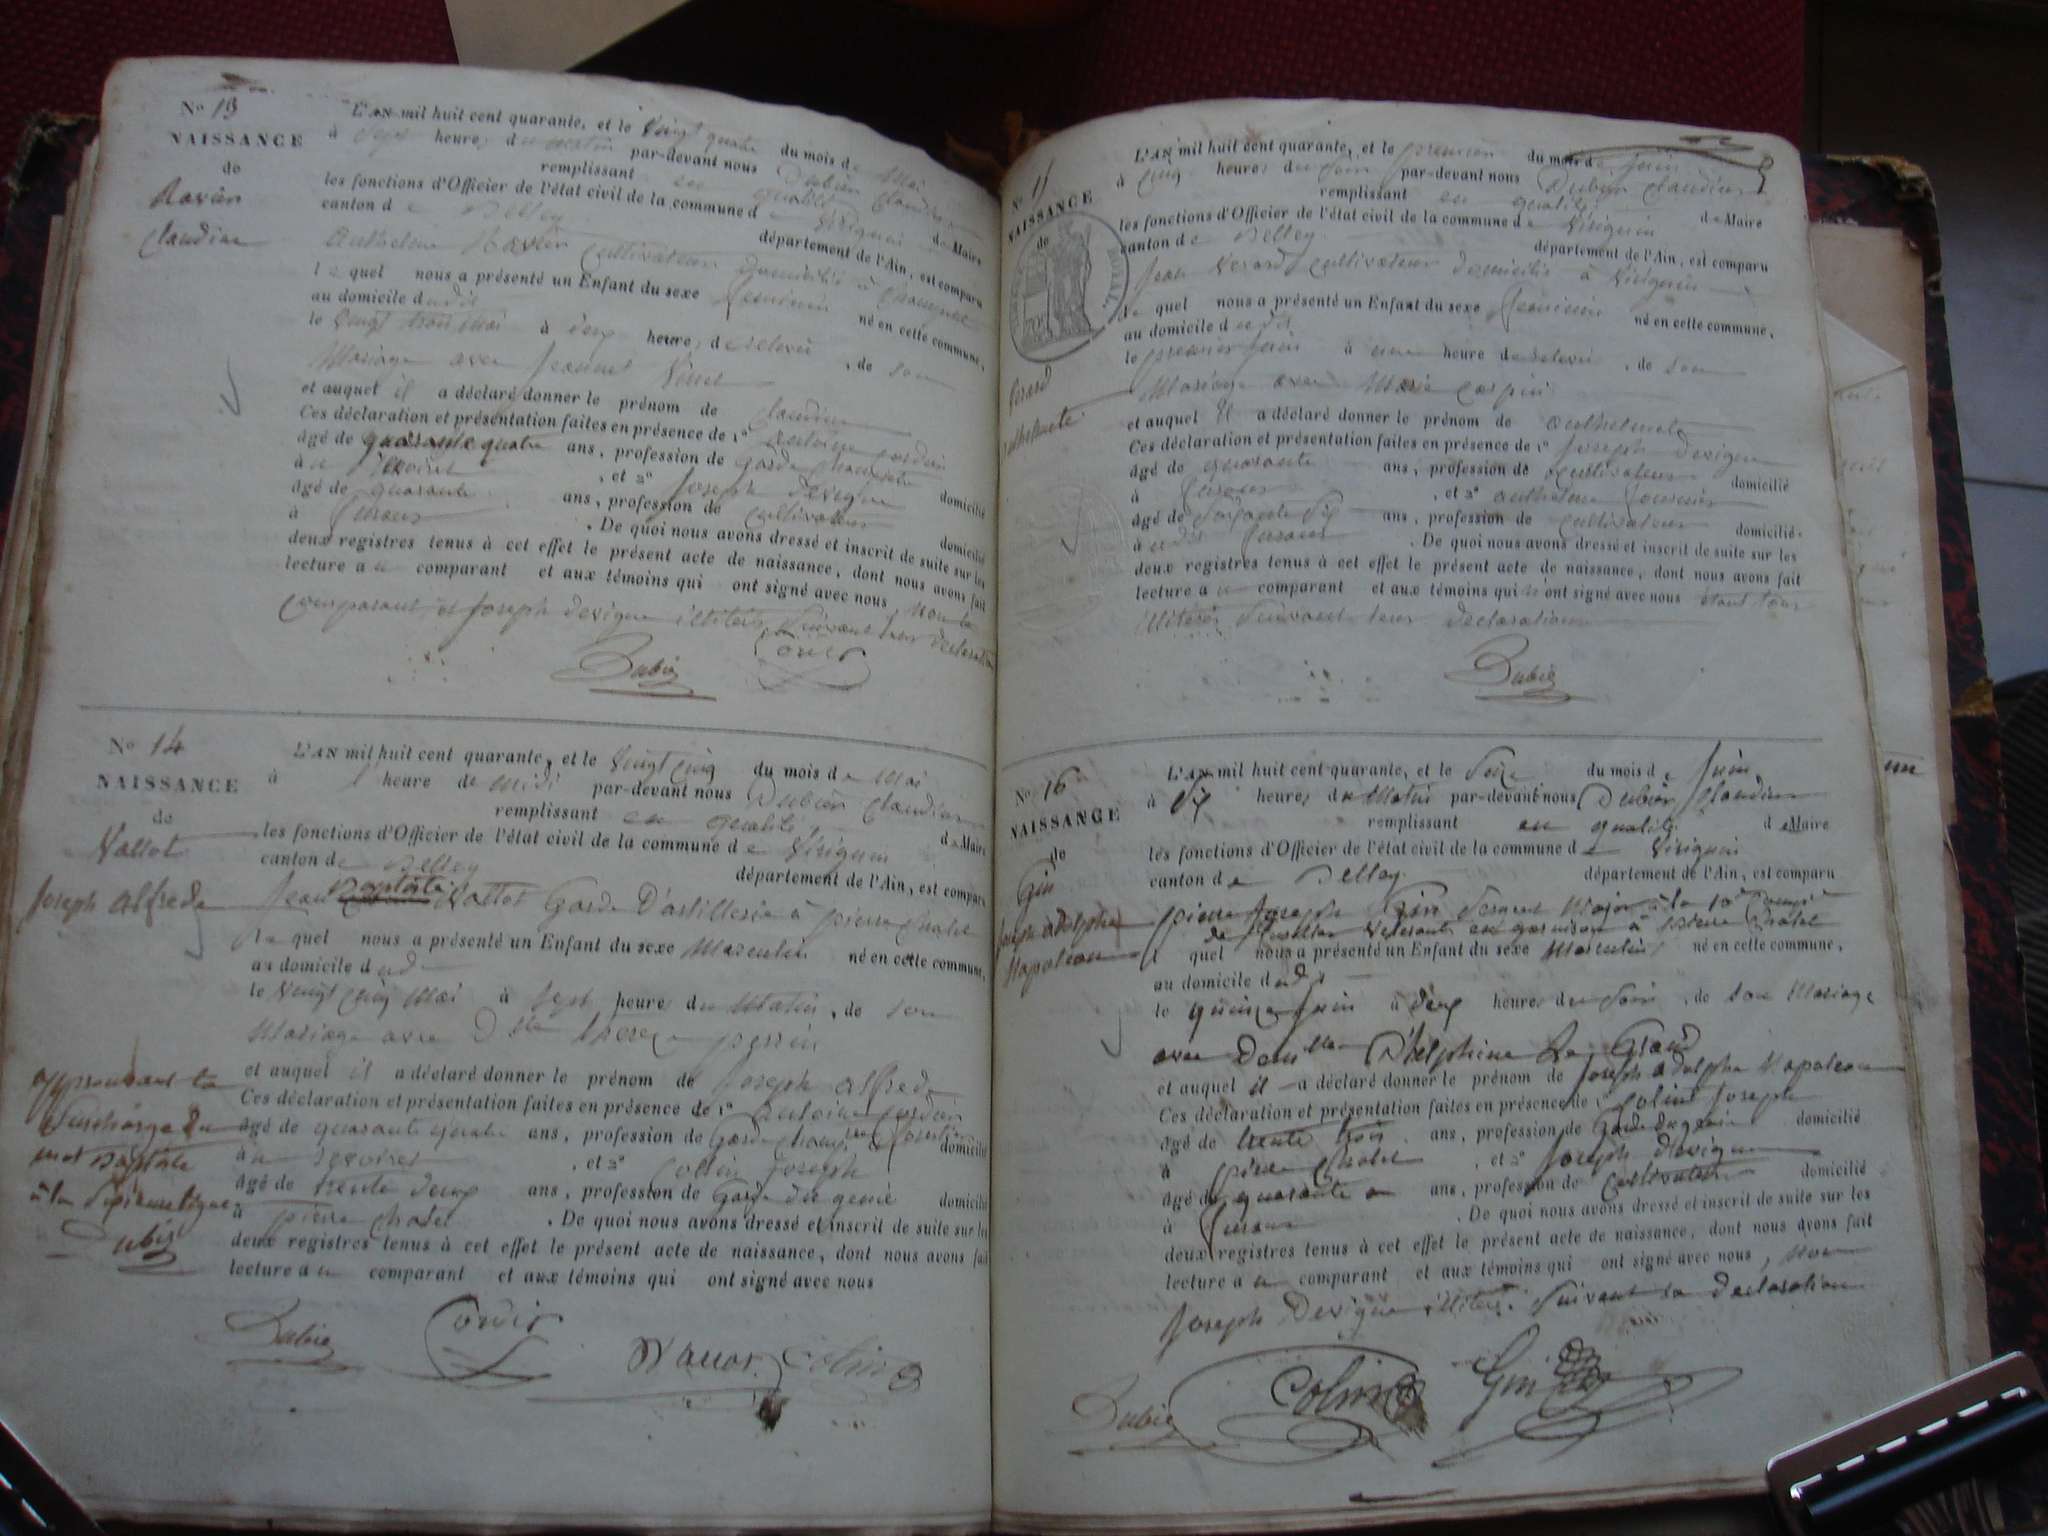 No 13
NAISSANCE
de
Ravier
Claudine
L'AN mil huit cent quarante, et le vingt quatre du mois de Mai
à sept heures du matin par-devant nous Dubier Claudius
remplissant en qualité de Maire
les fonctions d'Officier de l'état civil de la commune de Virignin
canton de Belley département de l'Ain, est comparu
Anthelme Ravier cultivateur domicilié à
lequel nous a présenté un Enfant du sexe feminin né en cette commune,
au domicile dudit
le vingt trois Mai à deux heures de relevée, de son
Mariage avec Jeanne
et auquel il a déclaré donner le prénom de Claudine
Ces déclaration et présentation faites en présence de 1° Antoine Cordier
âgé de quarante quatre ans, profession de Garde champetre domicilié
à , et 2° Joseph Devigne
âgé de quarante ans, profession de cultivateur domicilié
à . De quoi nous avons dressé et inscrit de suite sur les
deux registres tenus à cet effet le présent acte de naissance, dont nous avons fait
lecture au comparant et aux témoins qui ont signé avec nous, non le
comparant et Joseph Devigne illitérés suivant leur declaration
Dubier
No 14
NAISSANCE
de
Vallot
Joseph alfrede
L'AN mil huit cent quarante, et le vingt cinq du mois de Mai
à l'heure de midi par-devant nous Dubier Claudius
remplissant en qualité de Maire
les fonctions d'Officier de l'état civil de la commune de Virignin
canton de Belley département de l'Ain, est comparu
Jean Baptiste Vallot Garde D'artillerie à pierre chatel
lequel nous a présenté un Enfant du sexe Masculin né en cette commune,
au domicile dudit
le vingt cinq Mai à sept heures du Matin, de son
Mariage avec Dlle perrin
et auquel il a déclaré donner le prénom de Joseph alfrede
Ces déclaration et présentation faites en présence de 1° Antoine Cordier
âgé de quarante quatre ans, profession de Garde domicilié
à , et 2° Colin Joseph
âgé de trente deux ans, profession de Garde du genie domicilié
à pierre chatel . De quoi nous avons dressé et inscrit de suite sur les
deux registres tenus à cet effet le présent acte de naissance, dont nous avons fait
lecture au comparant et aux témoins qui ont signé avec nous
approuvant la
surcharge du
mot Baptiste
à la sixieme ligne
Dubier
Dubier
Colin
No 15
NAISSANCE
de
Anthelmette
L'AN mil huit cent quarante, et le premier du mois de Juin
à cinq heures du soir par-devant nous Dubier Claudius
remplissant en qualité de Maire
les fonctions d'Officier de l'état civil de la commune de Virignin
canton de Belley département de l'Ain, est comparu
Jean cultivateur domicilié à Virignin
lequel nous a présenté un Enfant du sexe feminin né en cette commune,
au domicile dudit
le premier Juin à une heure de relevée, de son
Mariage avec Marie
et auquel il a déclaré donner le prénom de anthelmette
Ces déclaration et présentation faites en présence de 1° Joseph Devigne
âgé de quarante ans, profession de cultivateur domicilié
à , et 2° anthelme
âgé de soixante six ans, profession de cultivateur domicilié
à . De quoi nous avons dressé et inscrit de suite sur les
deux registres tenus à cet effet le présent acte de naissance, dont nous avons fait
lecture au comparant et aux témoins qui n'ont signé avec nous étant tous
illitérés suivant leur declaration
Dubier
No 16
NAISSANCE
de
Gin
Joseph adolphe
Napoleon
L'AN mil huit cent quarante, et le seize du mois de Juin
à six heures du Matin par-devant nous Dubier Claudius
remplissant en qualité de Maire
les fonctions d'Officier de l'état civil de la commune de Virignin
canton de Belley département de l'Ain, est comparu
pierre Joseph Gin Sergent Major à la 10e Compie
de Fusilier Veterans en garnison à pierre chatel
lequel nous a présenté un Enfant du sexe Masculin né en cette commune,
au domicile dudit
le quinze Juin à deux heures du soir, de son Mariage
avec Demlle Delphine Le Grand
et auquel il a déclaré donner le prénom de Joseph adolphe Napoleon
Ces déclaration et présentation faites en présence de 1° Colin Joseph
âgé de trente trois ans, profession de Garde du genie domicilié
à pierre chatel , et 2° Joseph Devigne
âgé de quarante ans, profession de cultivateur domicilié
à . De quoi nous avons dressé et inscrit de suite sur les
deux registres tenus à cet effet le présent acte de naissance, dont nous avons fait
lecture au comparant et aux témoins qui ont signé avec nous, non
Joseph Devigne illitéré suivant sa declaration
Dubier Colin Gin